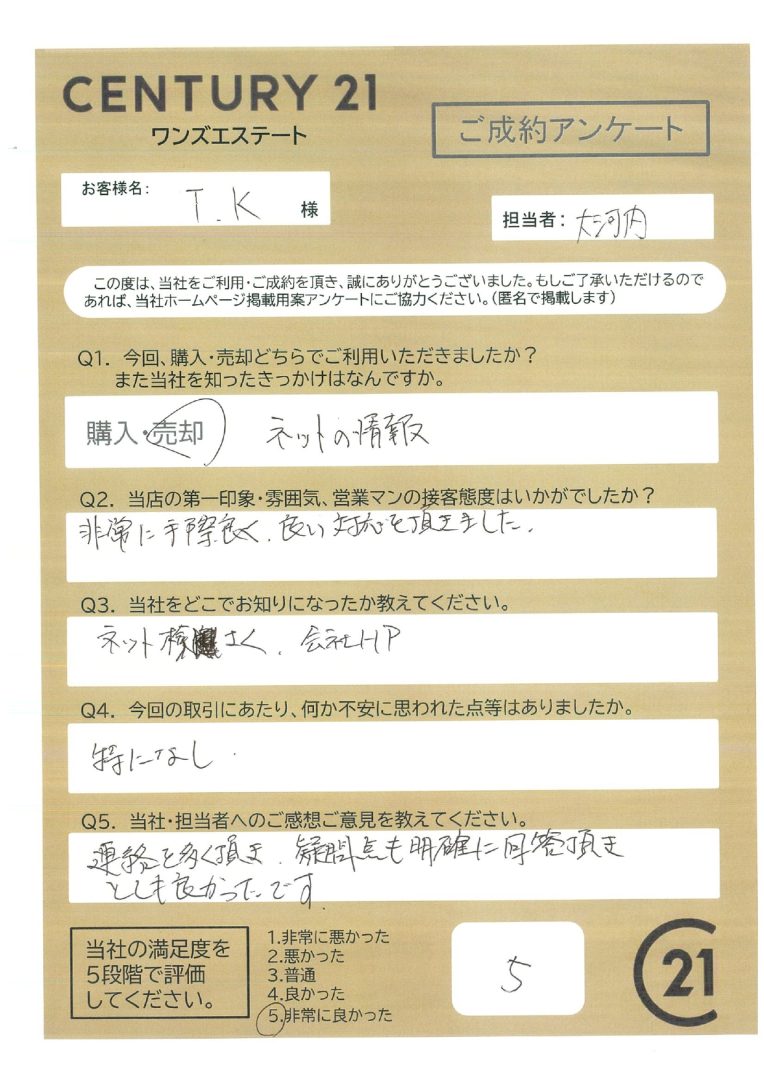 CENTURY 21
ワンズエステート
ご成約アンケート
お客様名: T.K 様
担当者: 大河内
この度は、当社をご利用・ご成約を頂き、誠にありがとうございました。もしご了承いただけるので
あれば、当社ホームページ掲載用案アンケートにご協力ください。(匿名で掲載します)
Q1. 今回、購入・売却どちらでご利用いただきましたか?
また当社を知ったきっかけはなんですか。
購入・売却 ネットの情報
Q2. 当店の第一印象・雰囲気、営業マンの接客態度はいかがでしたか?
非常に手際良く、良い対応を頂きました。
Q3. 当社をどこでお知りになったか教えてください。
ネット検さく、会社HP
Q4. 今回の取引にあたり、何か不安に思われた点等はありましたか。
特になし.
Q5. 当社・担当者へのご感想ご意見を教えてください。
連絡を多く頂き、疑問点も明確に回答頂き
とても良かったです。
当社の満足度を
5段階で評価
してください。
1.非常に悪かった
2.悪かった
3.普通
4.良かった
5.非常に良かった
5
21